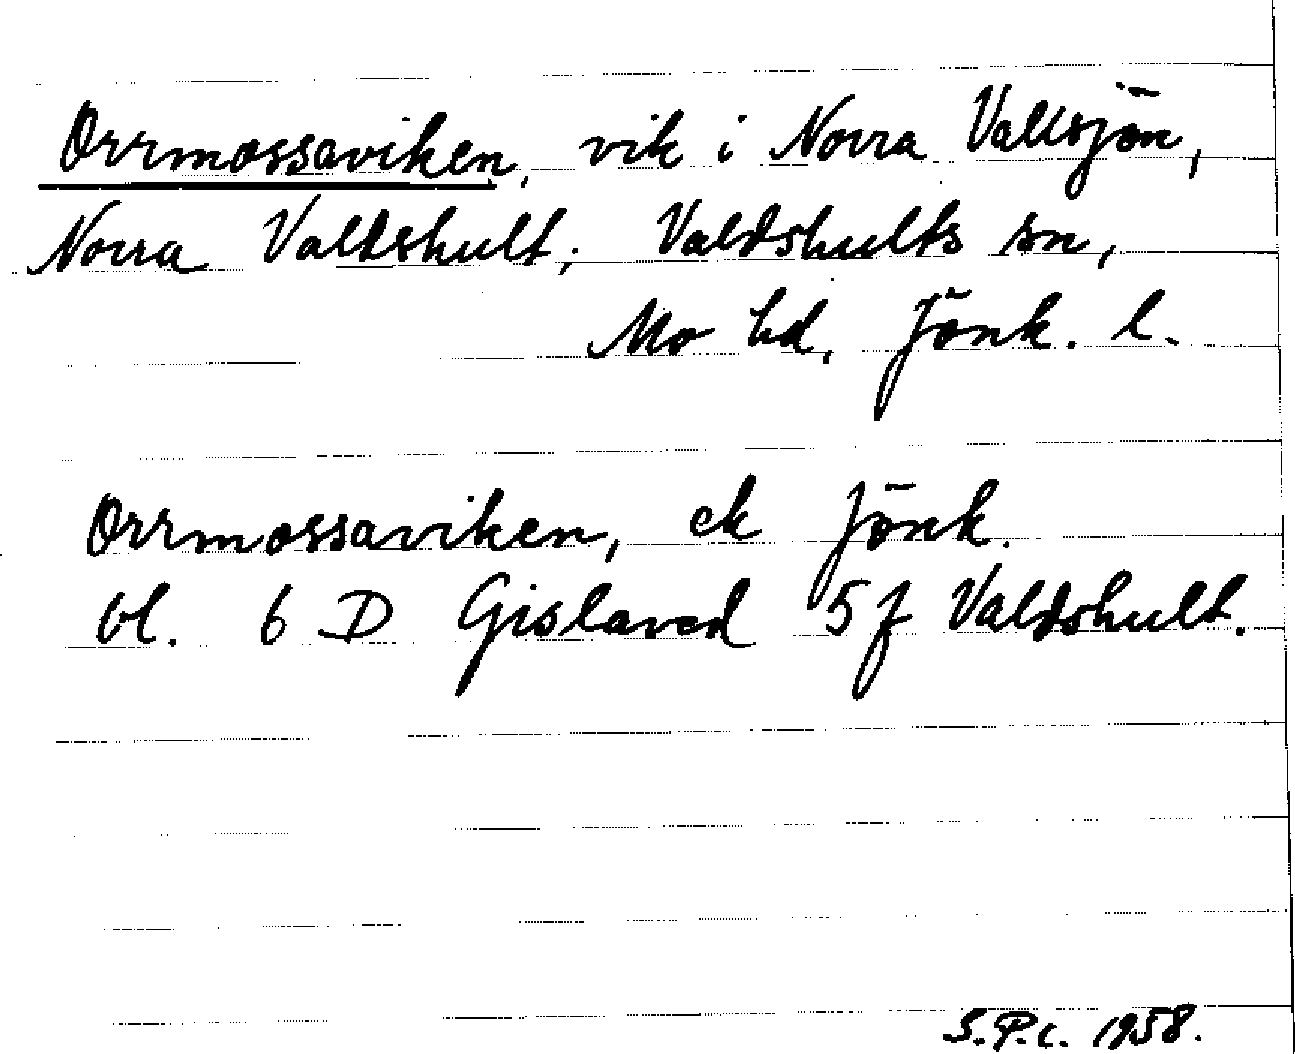 Orrmossaviken, vik i Norra Vallsjön,
Norra Valdshult, Valdshults sn,
Mo hd, Jönk. l.
Orrmossaviken, ek Jönk.
bl. 6 D Gislaved 5 f Valdshult.
S.P.c. 1958.